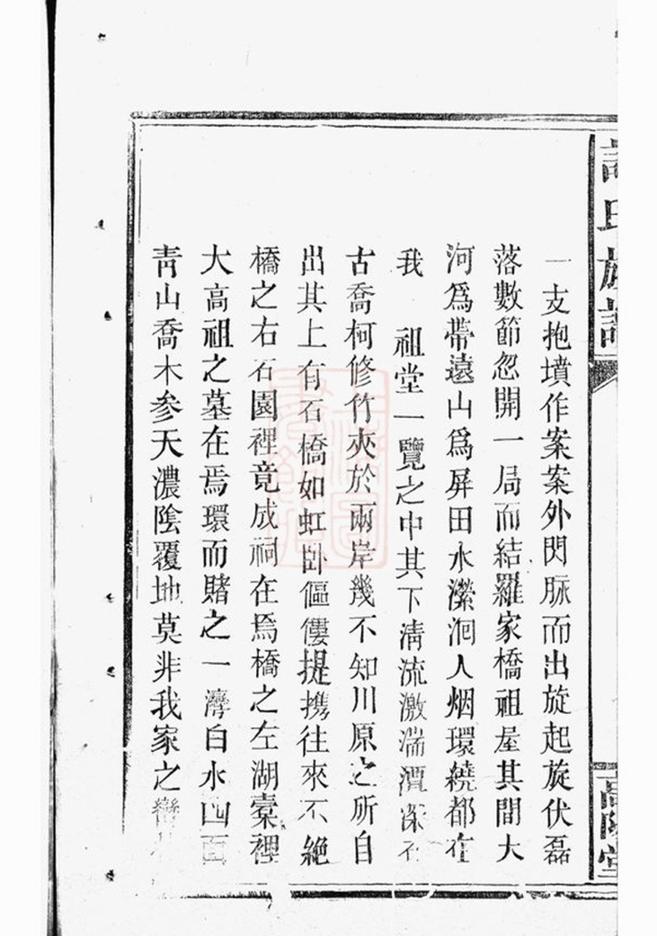 許氏族譜
高陽堂
一支抱墳作案案外閃脉而出旋起旋伏磊
落數節忽開一局而結羅家橋祖屋其間大
河爲帶遠山爲屏田水瀠洄人烟環繞都在
我　祖堂一覽之中其下淸流激湍潭深
古喬柯修竹夾於兩岸幾不知川原之所自
出其上有石橋如虹卧傴僂提携往來不絶
橋之右石園裡竟成祠在焉橋之左湖㯱裡
大高祖之墓在焉環而賭之一灣白水四面
靑山喬木參天濃陰覆地莫非我家之